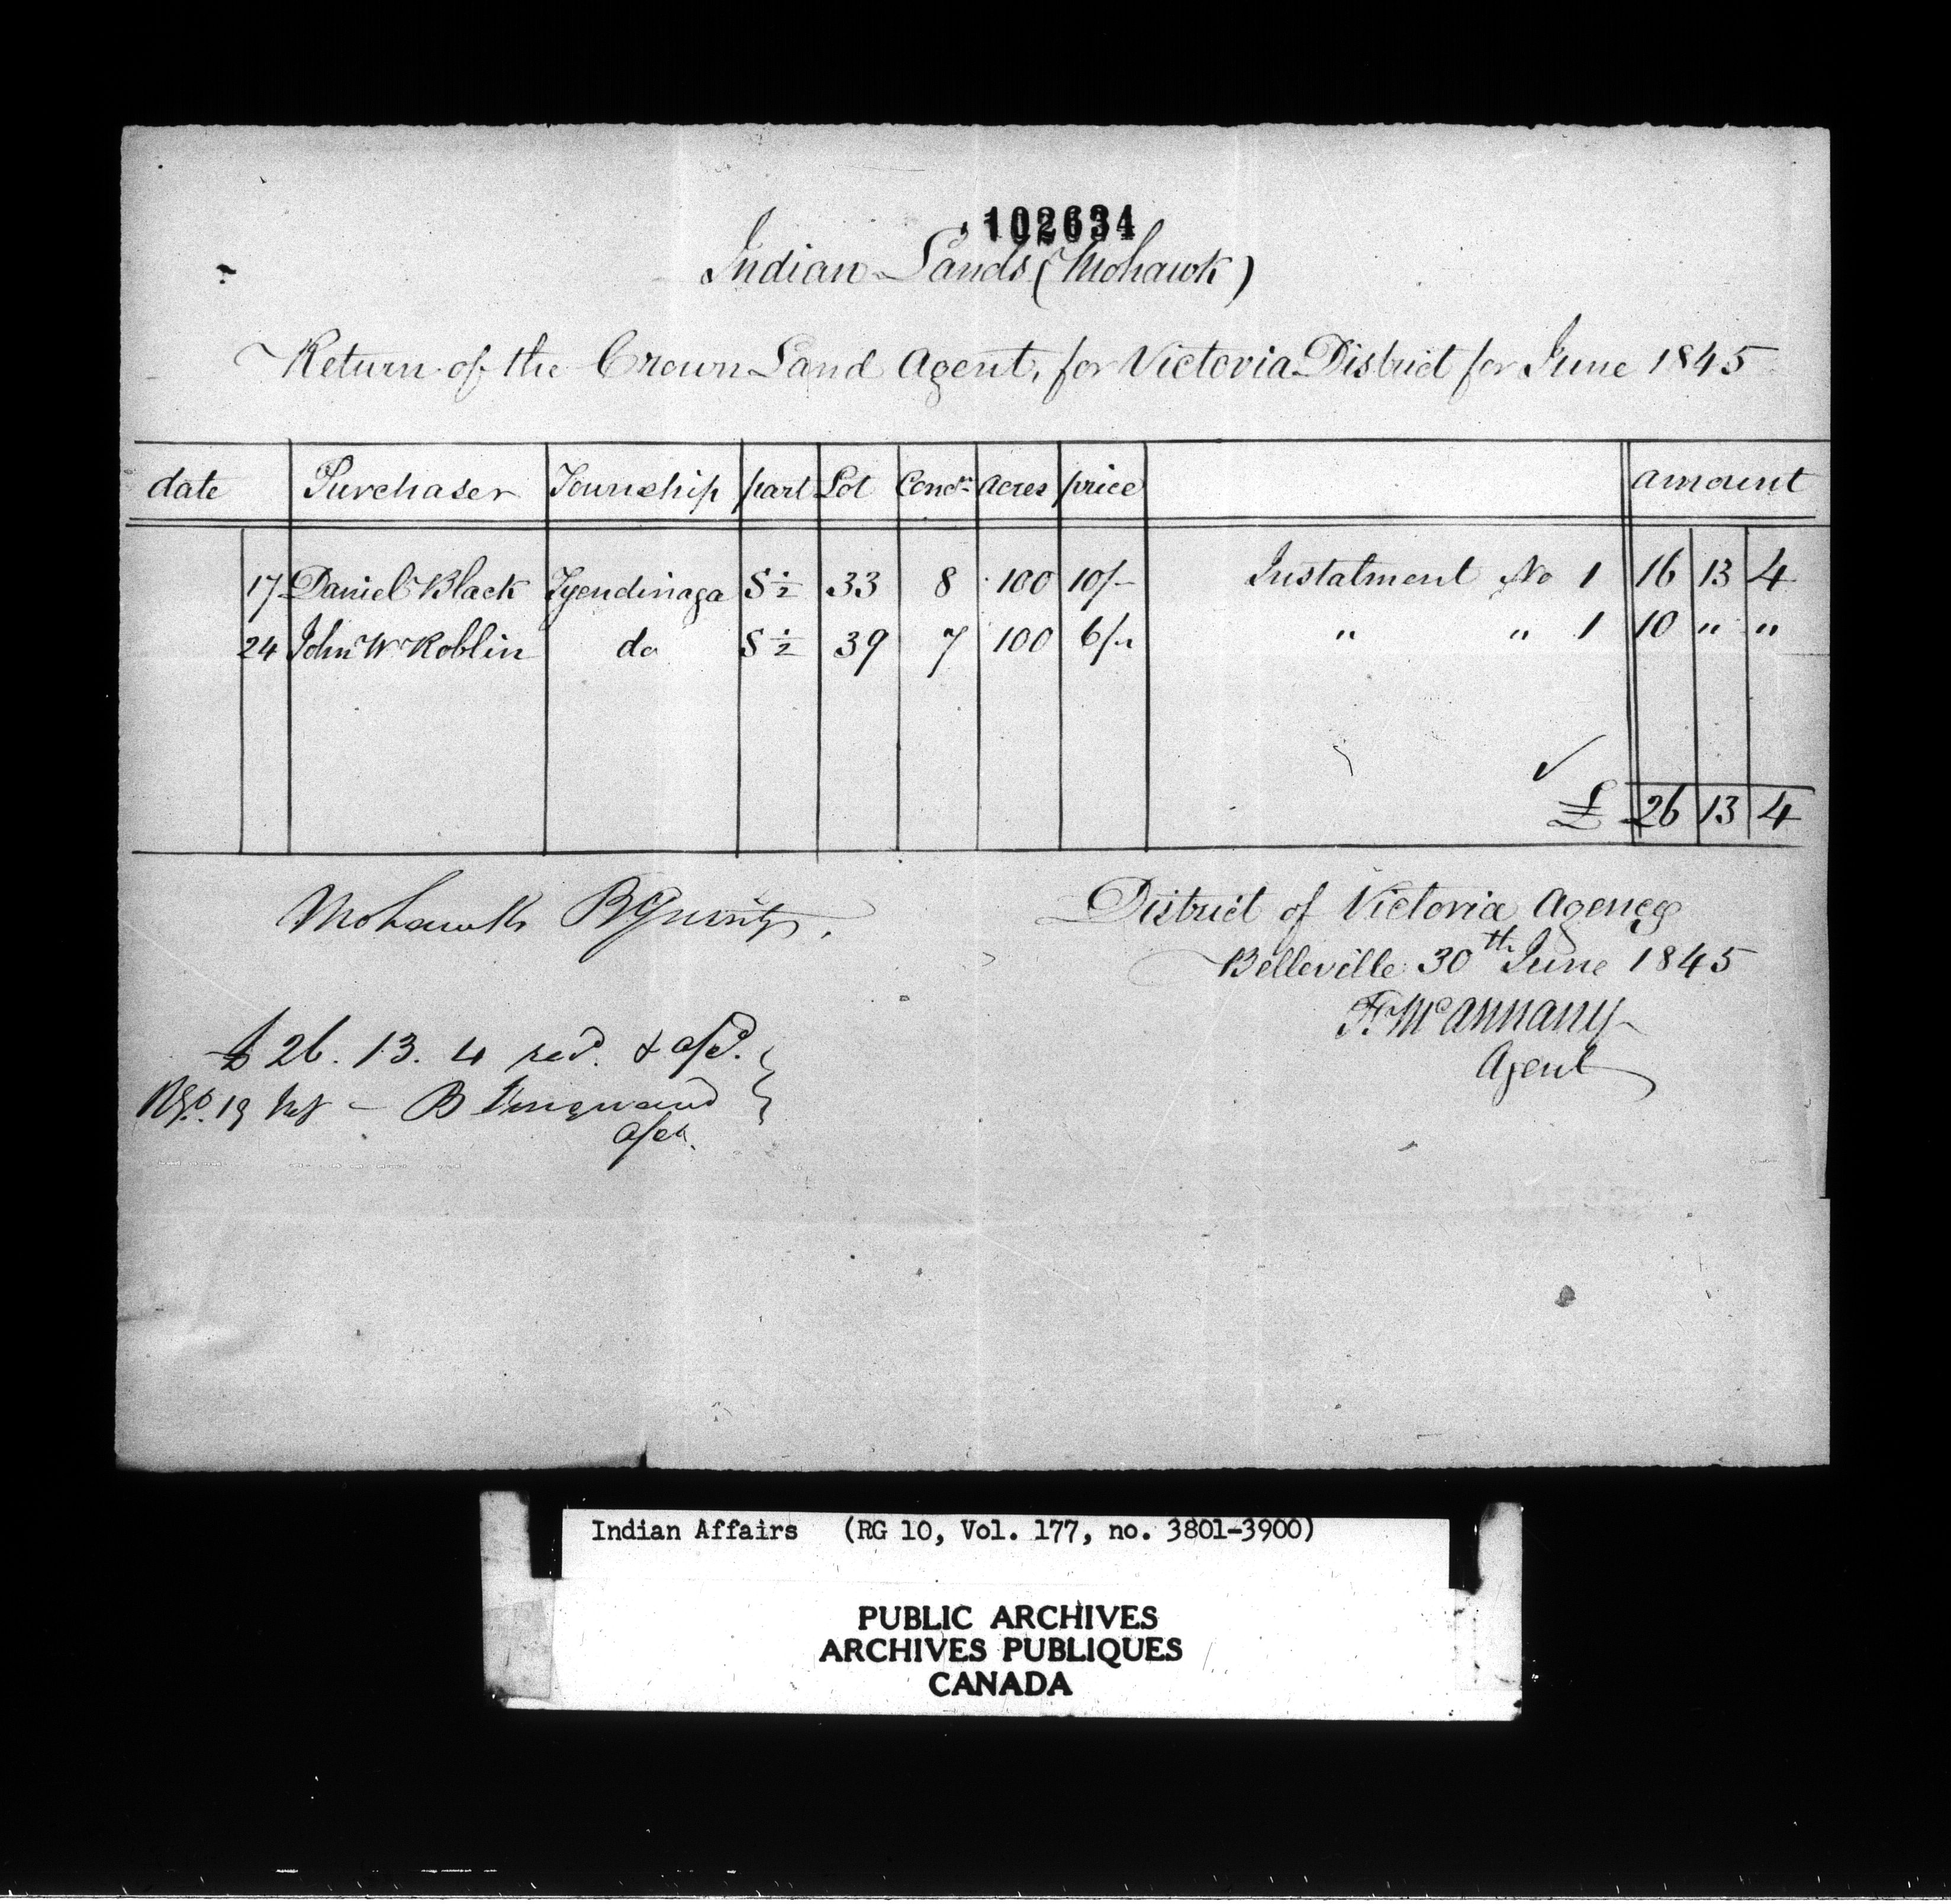 102634
Indian Lands (Mohawk)
Return of the Crown Land Agent, for Victoria District for June 1845
date Purchaser Township part Lot Conc.n acres price amount
17 Daniel Black Tyendinaga S ½ 33 8 100 10/- Instalment No 1 16 13 4
24 John W Roblin do S ½ 39 7 100 6/" " " 1 10 " "
£ 26 13 4
Mohawks B Quinté.
District of Victoria Agency
Belleville 30th June 1845
F. McAnnany
Agent
£ 26. 13. 4
19 B Turquand
Indian Affairs (RG 10, Vol. 177, no. 3801-3900)
PUBLIC ARCHIVES
ARCHIVES PUBLIQUES
CANADA